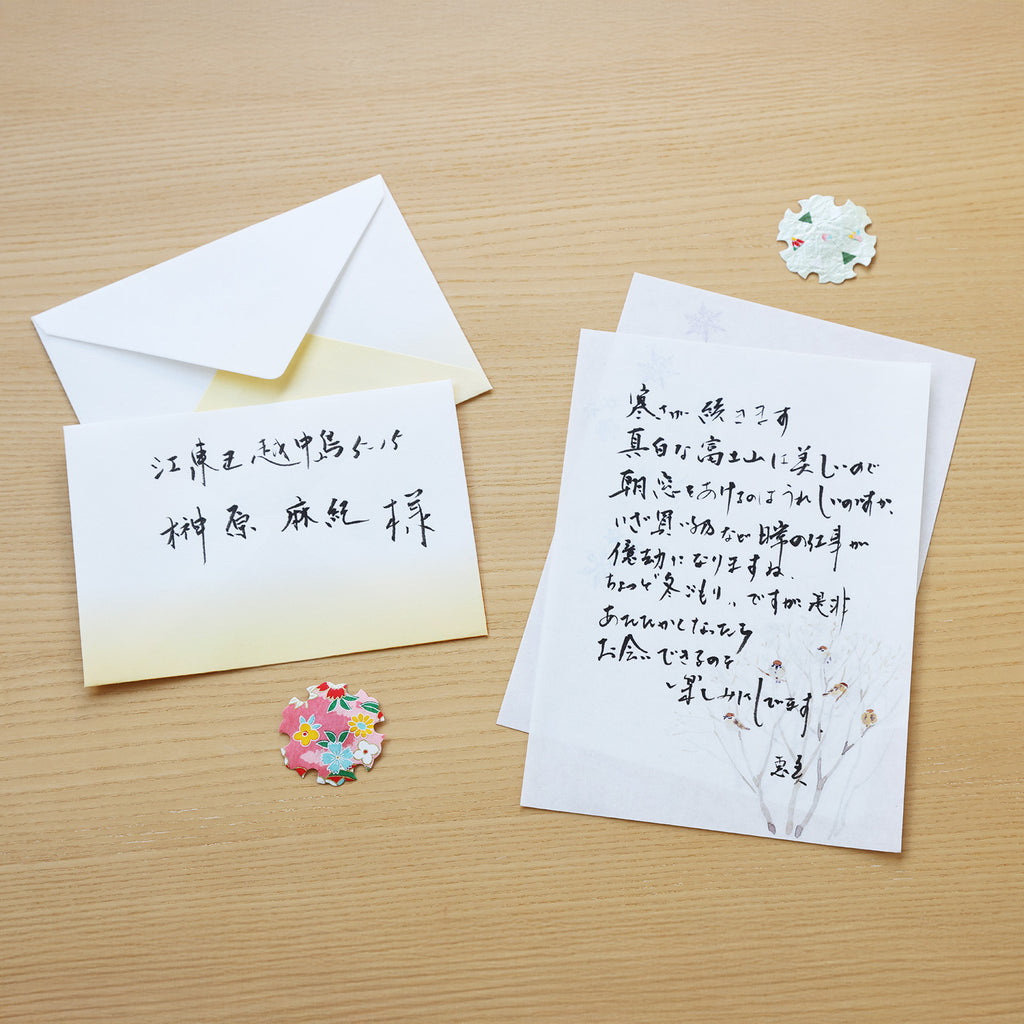 江東区越中島5-15
榊原 麻紀 様
寒さが続きます
真白な富士山は美しいので
朝窓をあけるのはうれしいのですが、
いざ買い物など日常の仕事が
億劫になりますね、
ちょっと冬ごもり、、ですが是非
あたたかくなったら
お会いできるのを
楽しみにしてます、
恵美